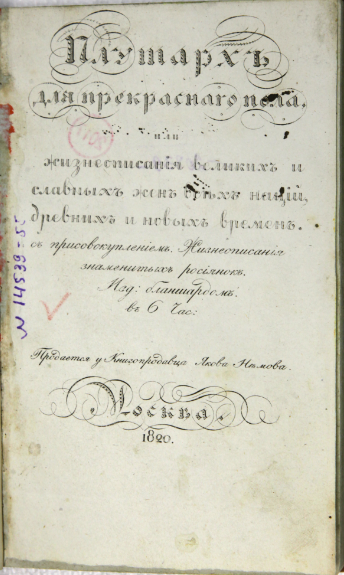 Плутархъ
для прекраснаго пола,
или
жизнеописанія великихъ и
славныхъ женъ всѣхъ націй,
древнихъ и новыхъ временъ.
съ присовокупленіемъ Жизнеописанія
знаменитыхъ россіянокъ.
Изд: бланшардомъ.
въ 6 Час:
Продается у Книгопродавца Якова
Москва.
1820.
N 14539-